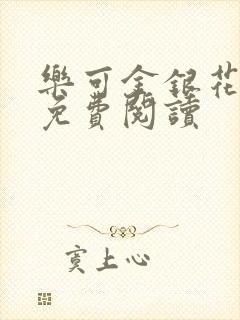 樂可金銀花
免費閱讀
寞上心